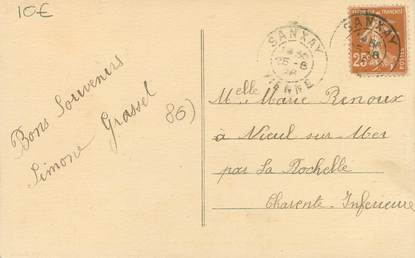 10€
Bons Souvenirs
Simone Grasset
86)
SANXAY
25-8
VIENNE
SANXAY
25c
POSTES
Melle Marie Renoux
à Nieul sur Mer
par La Rochelle
Charente-Inférieure